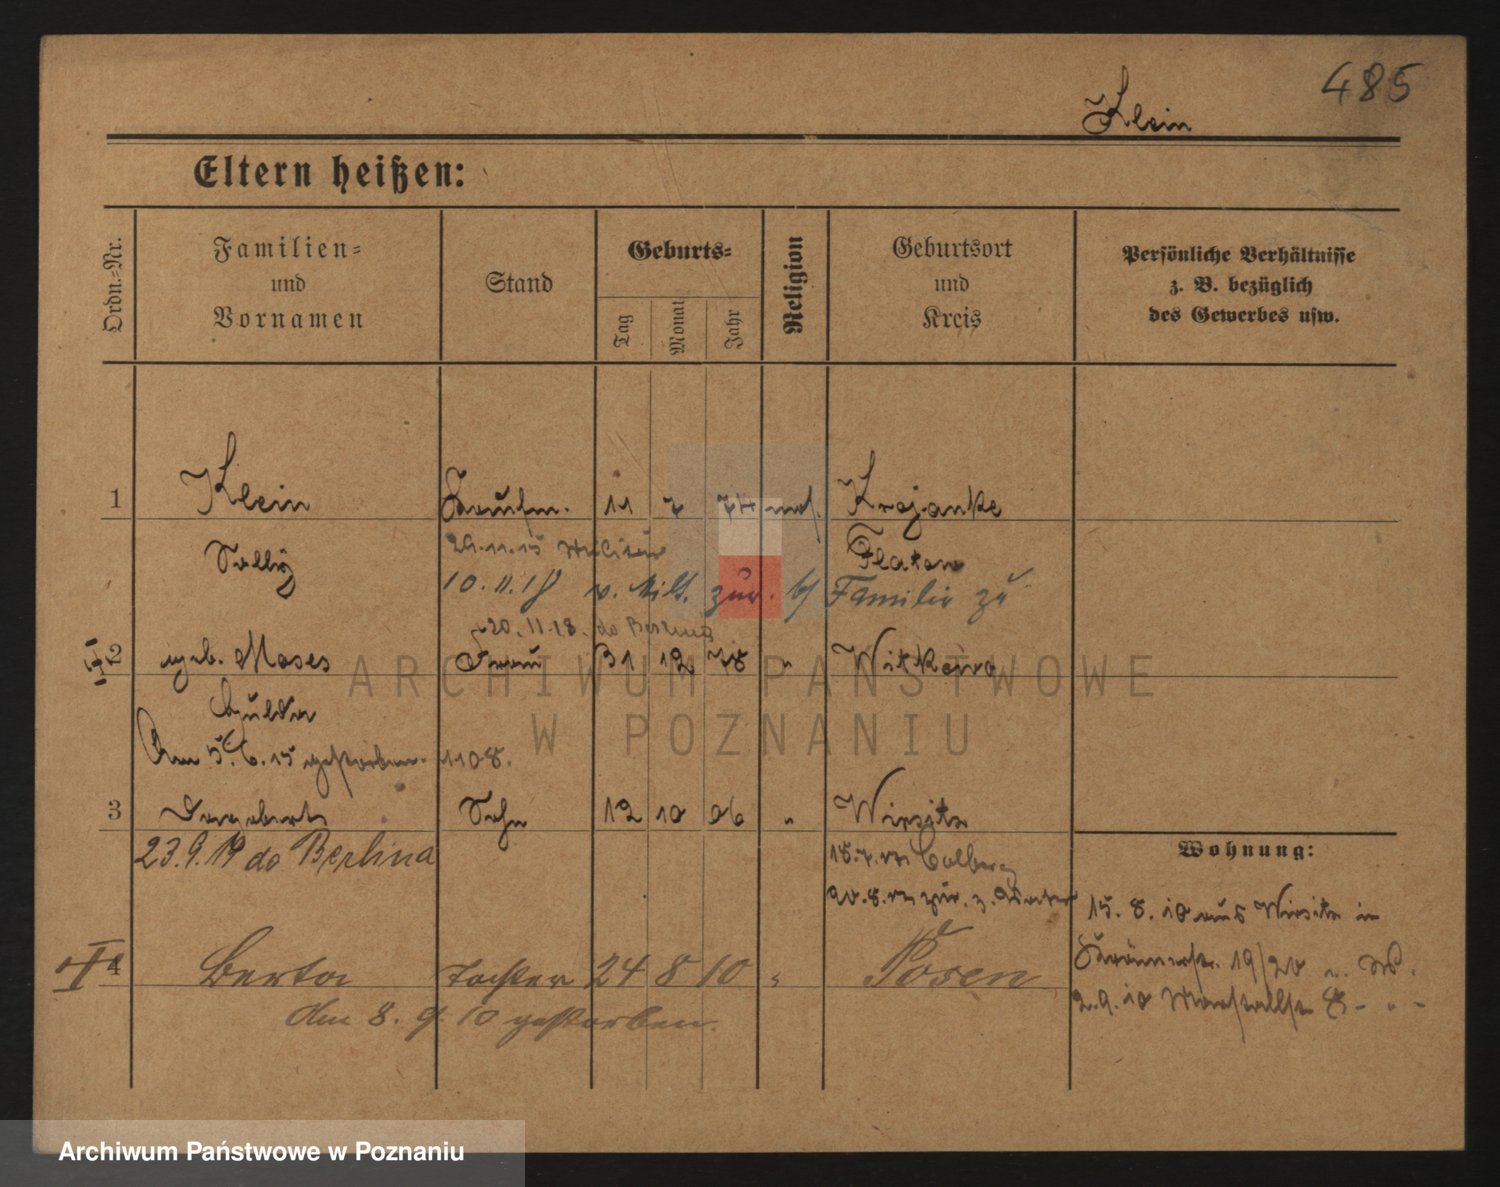 485
Klein
Eltern heißen:
Ordn.=Nr.
Familien=
und
Vornamen
Stand
Geburts=
Tag
Monat
Jahr
Religion
Geburtsort
und
Kreis
Persönliche Verhältnisse
z. B. bezüglich
des Gewerbes usw.
1 Klein Kaufm. 11 7 74 mos. Krojanke
Sally Flatow
29.11.15 Militär
10.11.18 v. Milt. zur. Familie zu
20.11.18. do Berlina
2 geb. Moses Frau 31 12 78 " Witkowo
Hulda
Am 5.6.15 gestorben. 1108.
3 Dagobert Sohn 12 10 06 " Wirsitz
23.9.19 do Berlina
Colberg
Wohnung:
15.8.10 aus Wirsitz in
19/20
4 Berta Tochter 24 8 10 " Posen
Am 8.9.10 gestorben.
2.9.10
ARCHIWUM PAŃSTWOWE
W POZNANIU
Archiwum Państwowe w Poznaniu